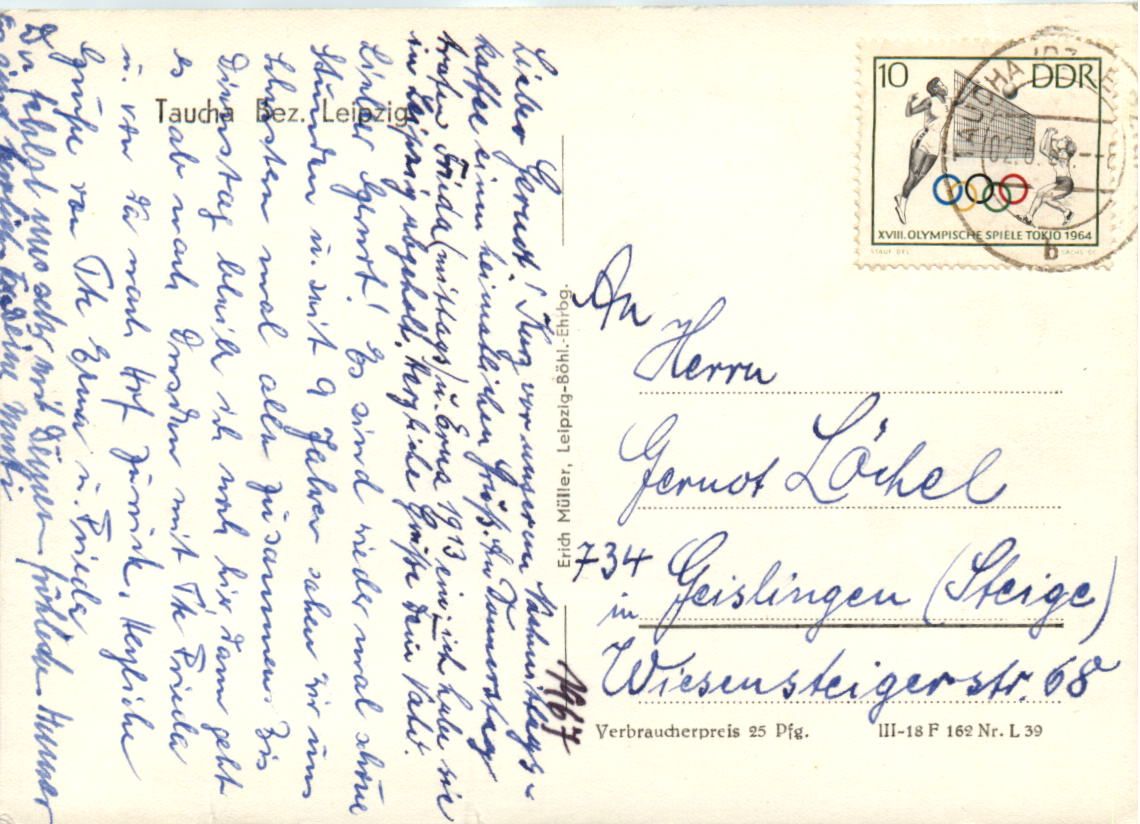 Taucha Bez. Leipzig
Lieber Gernot! Kurz vor unserem Nachmittags-
kaffee einen heimatlichen Gruß. Am Donnerstag
trafen Frieda (mittags) u. Erna 19.13 ein, ich habe sie
in Leipzig abgeholt. Herzliche Grüße Dein Vater.
Lieber Gernot! Es sind wieder mal schöne
Stunden u. seit 9 Jahren sahen wir uns
Schwestern mal alle zusammen. Bis
Dienstag bleibe ich noch hier, dann geht
es ab nach Dresden mit Tte Frieda
u. von da nach Hof zurück. Herzliche
Grüße von Tte Erna u. Frieda
Du fehlst uns sehr mit Deinem fröhlichen Humor
Deine Mutti
1967
Erich Müller, Leipzig-Böhl.-Ehrbg.
10 DDR
XVIII. OLYMPISCHE SPIELE TOKIO 1964
TAUCHA
b
An
Herrn
Gernot Löchel
734 Geislingen (Steige)
in
Wiesensteigerstr. 68
Verbraucherpreis 25 Pfg. III-18 F 162 Nr. L 39